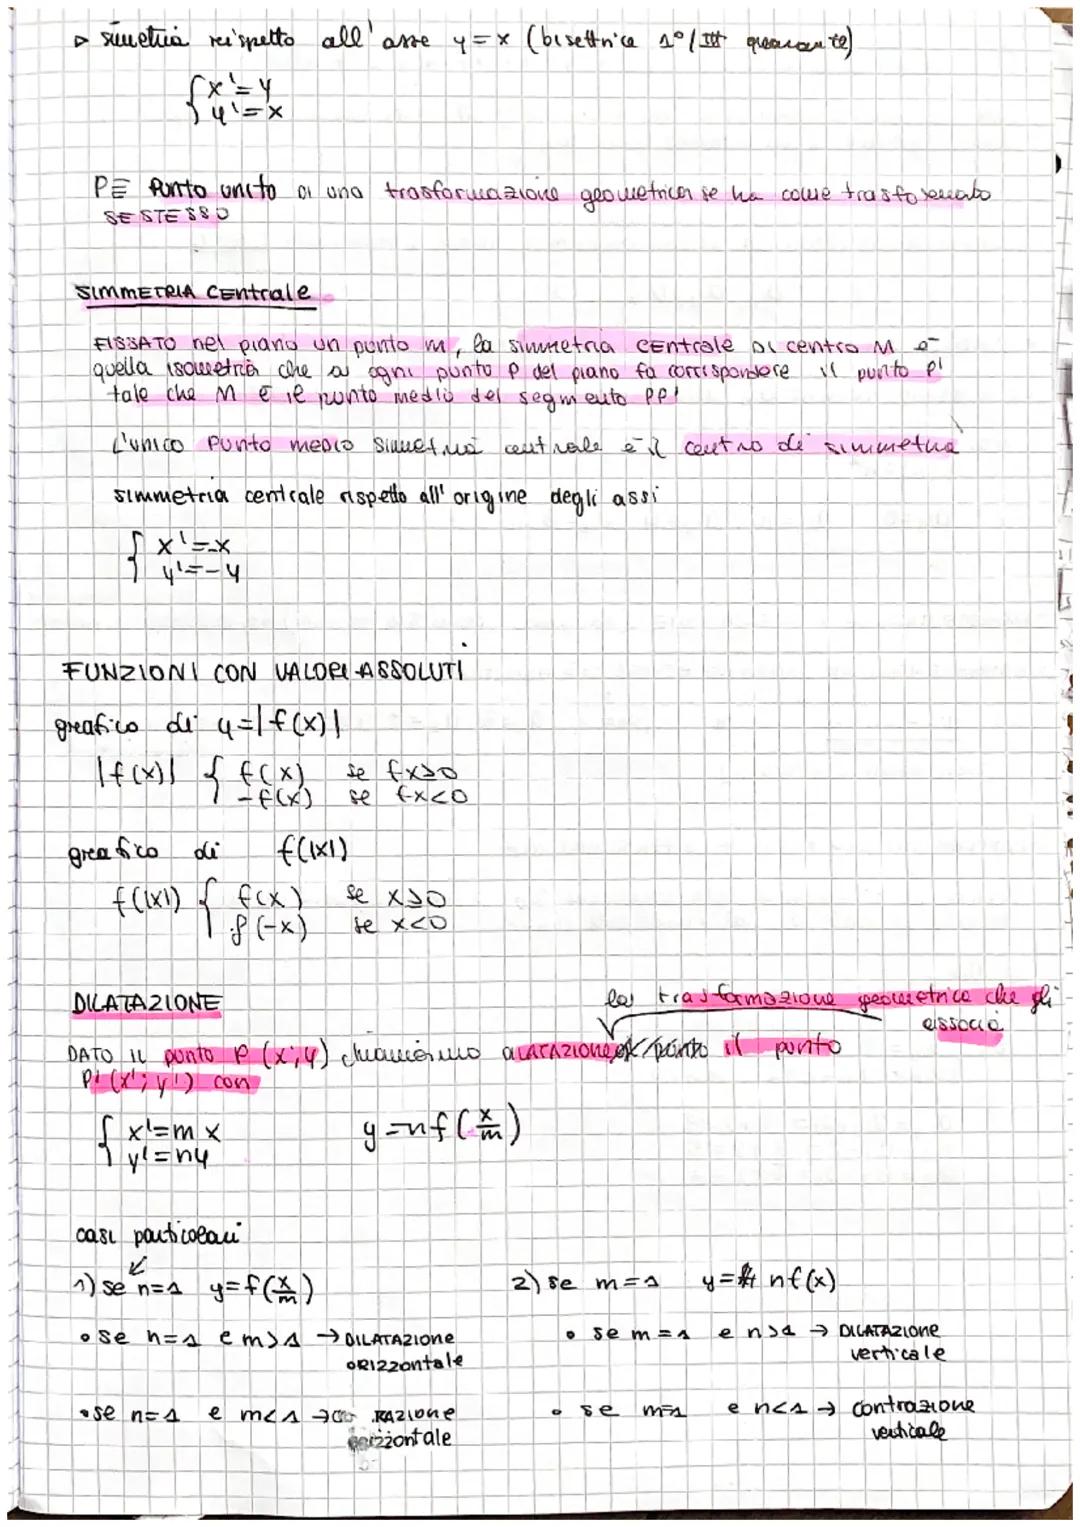 ▷ simmetria rispetto all'asse y=x (bisettrice 1°/III quadrante)
{ x'=y
y'=x
P È Punto unito di una trasformazione geometrica se ha come trasformato
SE STESSO
SIMMETRIA CEntrale
FISSATO nel piano un punto M, la simmetria CENtrale DI centro M è
quella isometria che a ogni punto P del piano fa corrispondere il punto P'
tale che M È il punto medio del segmento PP'
L'unico Punto MEDIO simmetria centrale è il centro di simmetria
simmetria centrale rispetto all'origine degli assi
{ x'=-x
y'=-y
FUNZIONI CON VALORI ASSOLUTI
grafico di y=|f(x)|
|f(x)| { f(x) se fx≥0
-f(x) se fx<0
grafico di f(|x|)
f(|x|) { f(x) se x≥0
f(-x) se x<0
DILATAZIONE
la trasformazione geometrica che gli
associa
DATO IL punto P (x;y) chiamiamo DILATAZIONE punto il punto
P' (x';y') con
{ x'=mx y=nf(x/m)
y'=ny
casi particolari
1) se n=1 y=f(x/m) 2) se m=1 y= nf(x)
• se n=1 e m>1 → DILATAZIONE • se m=1 e n>1 → DILATAZIONE
ORIZZontale verticale
• se n=1 e m<1 → RAZIONE • se m=1 e n<1 → contrazione
orizzontale verticale